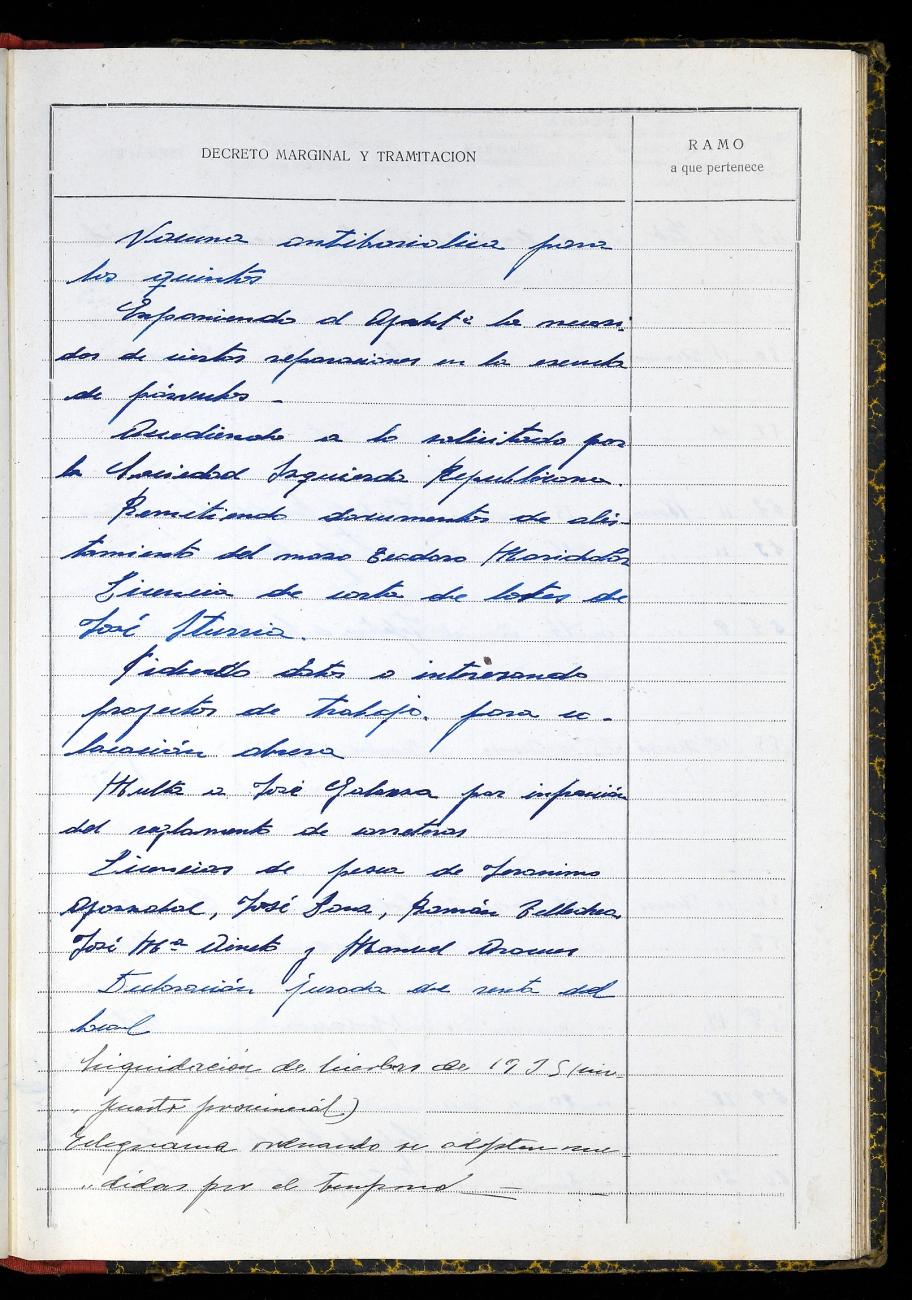 DECRETO MARGINAL Y TRAMITACION
RAMO
a que pertenece
Vacuna antitiorica para
los quintos
Exponiendo al Ayuntº la necesi-
dad de ciertas reparaciones en la escuela
de párvulos -
Accediendo a lo solicitado por
la Sociedad Izquierda Republicana.
Remitiendo documentos de alis-
tamiento del mozo
Licencia de corta de lotes de
José Iturria.
Pidiendo datos e interesando
proyectos de trabajo, para co-
locación obrera
Multa a José Galarza por infracción
del reglamento de carreteras
Licencias de pesca de Jeronimo
José Román
José Mª y Manuel
Declaración jurada de renta del
local
Liquidación de hierbas de 1935 (im-
puesto provincial)
Telegrama ordenando se adopten me-
didas por el temporal